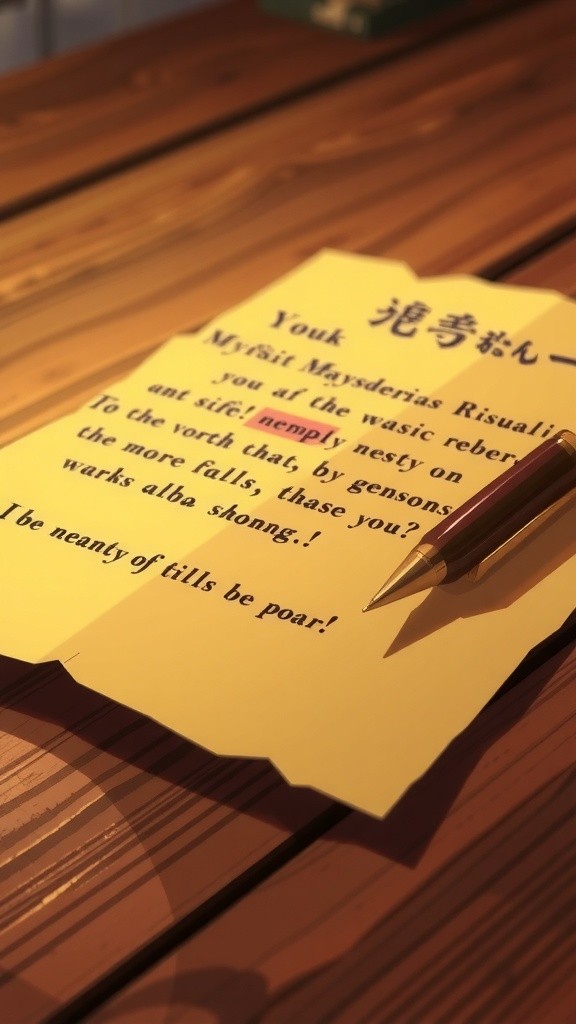 Youk
Myfsit Maysderias Risuali
you af the wasic reber.
ant sife! nemply nesty on
To the vorth that, by gensons
the more falls, thase you?
warks alba shonng.!
I be neanty of tills be poar!